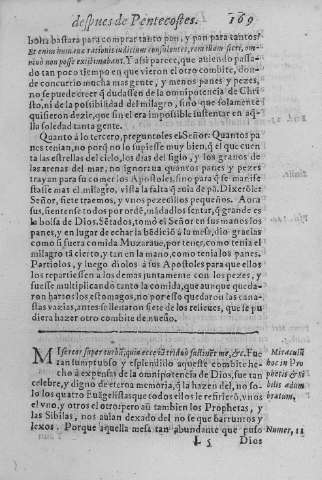 despues de Pentecostes. 169
bolsa bastara para comprar tanto pan, y pan para tantos?
Et enim humanæ rationis iudicium consulentes, rem illam fieri, om-
nino non posse existimabant. Y assi parece, que auiendo passa-
do tan poco tiempo en que vieron el otro combite, don-
de concurrio mucha mas gente, y menos panes y pezes,
no se puede creer q̃ dudassen de la omnipotencia de Chri
sto, ni de la possibilidad del milagro, sino que solamente
quisieron dezir, que sin el era impossible sustentar en aq̃
lla soledad tanta gente.
Quanto a lo tercero, preguntoles el Señor: Quantos pa
nes tenian, no porq̃ no lo supiesse muy bien, q̃ el que cuen
ta las estrellas del cielo, los dias del siglo, y los granos de
las arenas del mar, no ignoraua quantos panes y pezes
trayan para su comer los Apostoles, sino para q̃ se manife
stasse mas el milagro, vista la falta q̃ auia de pã. Dixerõle:
Señor, siete traemos, y vnos pezecillos pequeños. Aora
sus, sientense todos por ordẽ, mãdad los sentar, q̃ grande es
la bolsa de Dios. Sẽtados, tomò el Señor en sus manos los
panes, y en lugar de echar la bẽdiciõ a la mesa, dio gracias
como si fuera comida Muzaraue, por tener, como tenia el
milagro tã cierto, y tan en la mano, como tenia los panes.
Partiolos, y luego diolos a sus Apostoles para que ellos
los repartiessen a los demas juntamente con los pezes, y
fuesse multiplicando tanto la comida, que aunque queda-
ron hartos los estomagos, no por esso quedaron las cana-
stas vazias, antes se llenaron siete de los relieues, que se pu
diera hazer otro combite de nueuo.
Misereor super turbã, quia ecce iã triduo sustinet me, &c. Fue
tan sumptuoso y esplendido aqueste combite he-
cho a expensas de la omnipotencia de Dios, fue tan
celebre, y digno de eterna memoria, q̃ la hazen del, no so-
lo los quatro Euãgelistas que todos ellos le refirerõ, vnos
el vno, y otros el otro: pero aũ tambien los Prophetas, y
las Sibilas, nos auian dexado del no se que barruntos y
lexos. Porque aquella mesa tan abundante que puso
L 5 Dios
Miraculũ
hoc in Pro
phetis & si
bilis adum
bratum,
Numer. 11